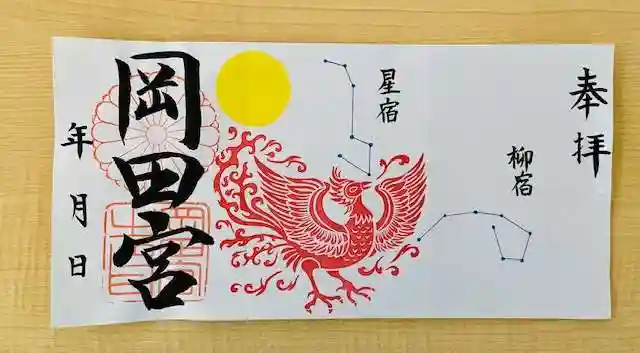 奉拝
柳宿
星宿
岡田宮
年月日